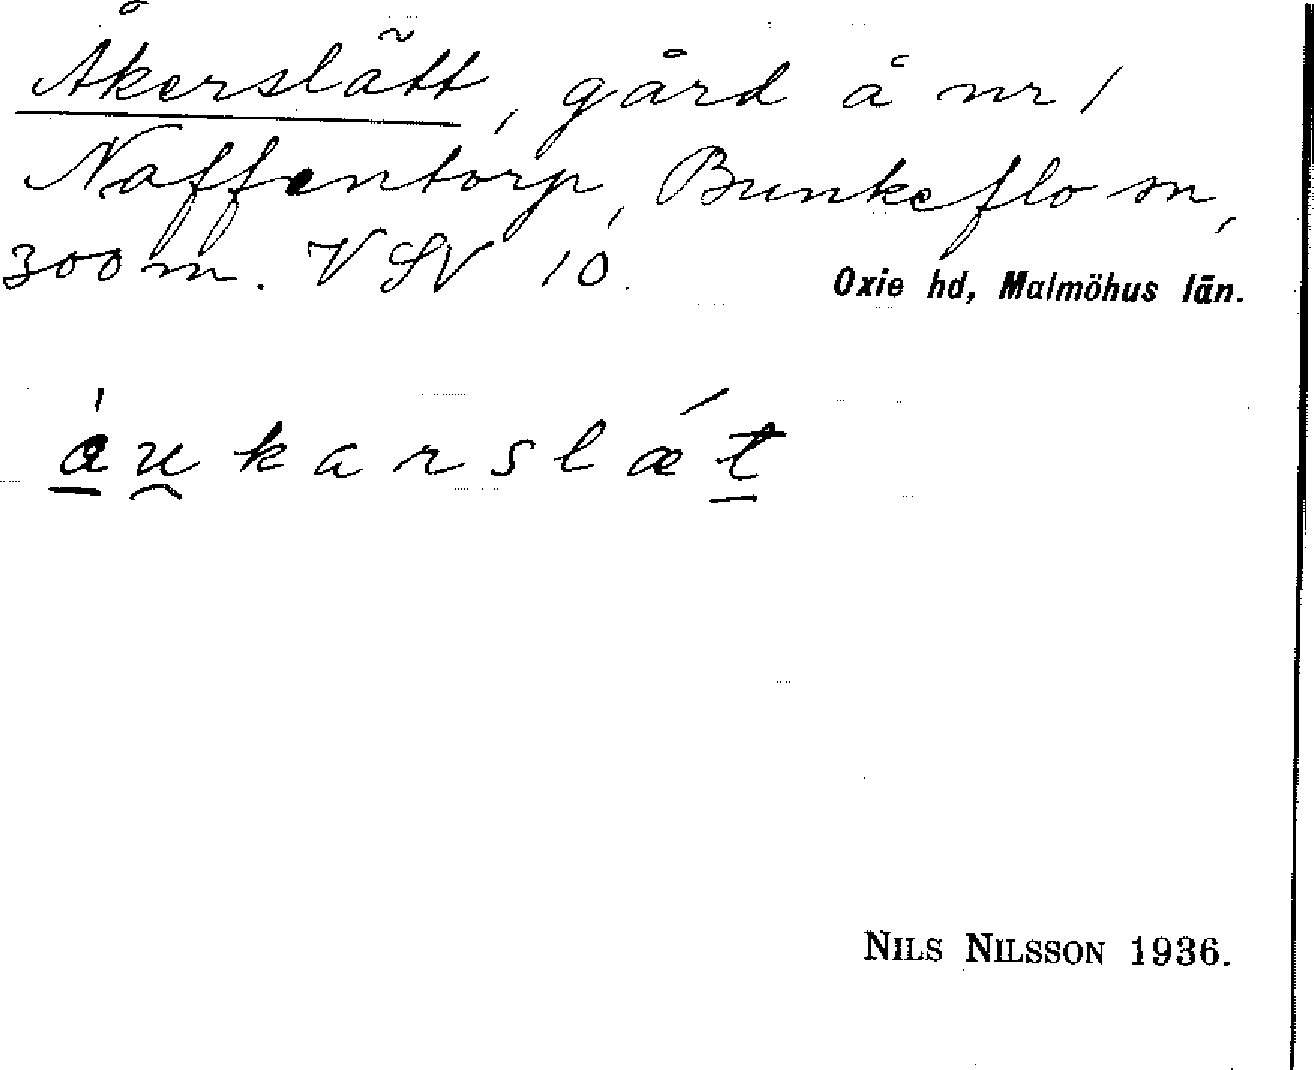 Åkerslätt, gård å nr 1
Naffentorp, Bunkeflo sn,
300 m. VSV 10.
Oxie hd, Malmöhus län.
áu̯karslǽt̲
NILS NILSSON 1936.